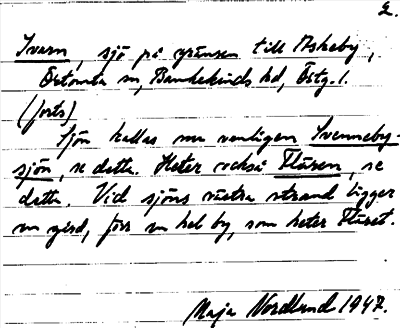 2.
Svarn, sjö på gränsen till Askeby,
Örtomta sn, Bankekinds hd, Östg. l.
(forts)
Sjön kallas nu vanligen Svenneby-
sjön, se detta. Heter också Flären, se
detta. Vid sjöns västra strand ligger
en gård, förr en hel by, som heter Fläret.
Maja Nordlund 1947.